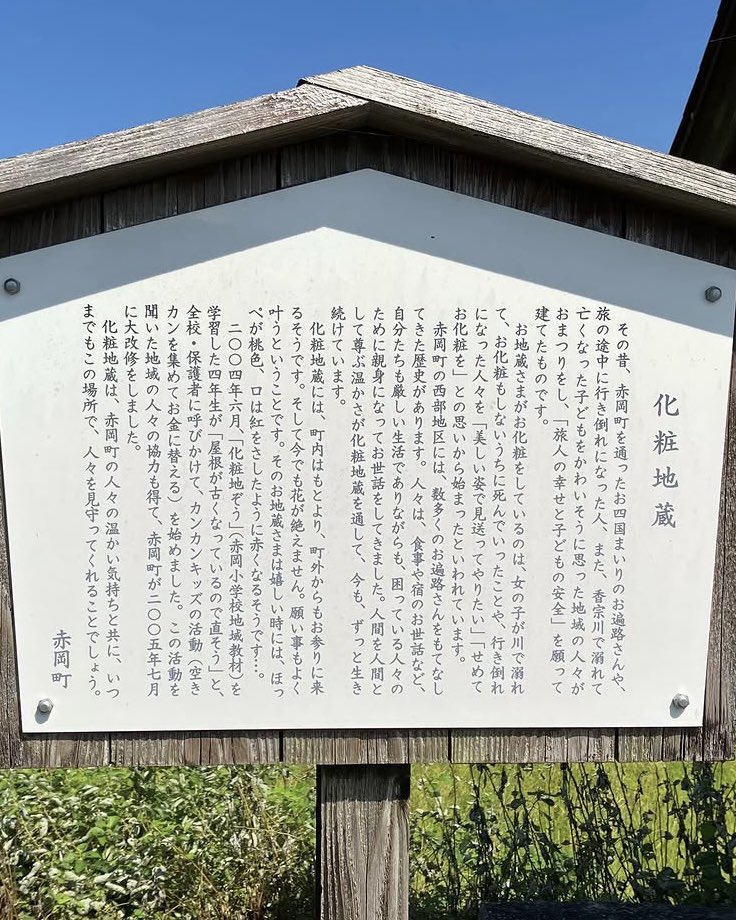 化粧地蔵
その昔、赤岡町を通ったお四国まいりのお遍路さんや、
旅の途中に行き倒れになった人、また、香宗川で溺れて
亡くなった子どもをかわいそうに思った地域の人々が
おまつりをし、「旅人の幸せと子どもの安全」を願って
建てたものです。
お地蔵さまがお化粧をしているのは、女の子が川で溺れ
て、お化粧もしないうちに死んでいったことや、行き倒れ
になった人々を「美しい姿で見送ってやりたい」「せめて
お化粧を」との思いから始まったといわれています。
赤岡町の西部地区には、数多くのお遍路さんをもてなし
てきた歴史があります。人々は、食事や宿のお世話など、
自分たちも厳しい生活でありながらも、困っている人々の
ために親身になってお世話をしてきました。人間を人間と
して尊ぶ温かさが化粧地蔵を通して、今も、ずっと生き
続けています。
化粧地蔵には、町内はもとより、町外からもお参りに来
るそうです。そして今でも花が絶えません。願い事もよく
叶うということです。そのお地蔵さまは嬉しい時には、ほっ
ぺが桃色、口は紅をさしたように赤くなるそうです…。
二〇〇四年六月「化粧地ぞう」（赤岡小学校地域教材）を
学習した四年生が「屋根が古くなっているので直そう」と、
全校・保護者に呼びかけて、カンカンキッズの活動（空き
カンを集めてお金に替える）を始めました。この活動を
聞いた地域の人々の協力も得て、赤岡町が二〇〇五年七月
に大改修をしました。
化粧地蔵は、赤岡町の人々の温かい気持ちと共に、いつ
までもこの場所で、人々を見守ってくれることでしょう。
赤岡町